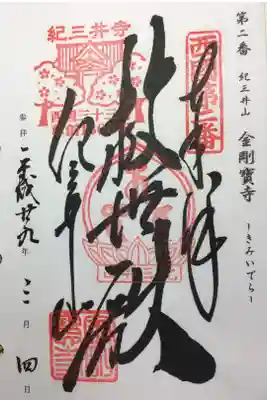 第二番 紀三井山 金剛寶寺 ーきみいでらー
西國第二番
奉拝
救世殿
紀三井寺
紀三井寺
参拝 平成廿九年 二月 四日